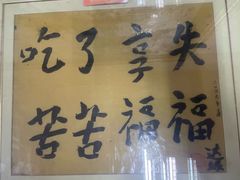 吃苦
了苦
享福
失福